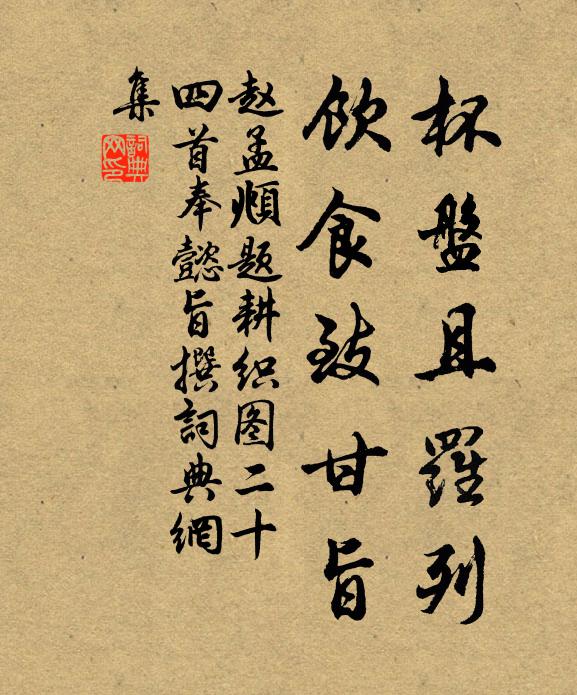 杯盤且羅列
飲食致甘旨
赵孟頫题耕织图二十
四首奉懿旨撰詞典網
集
詞典網印